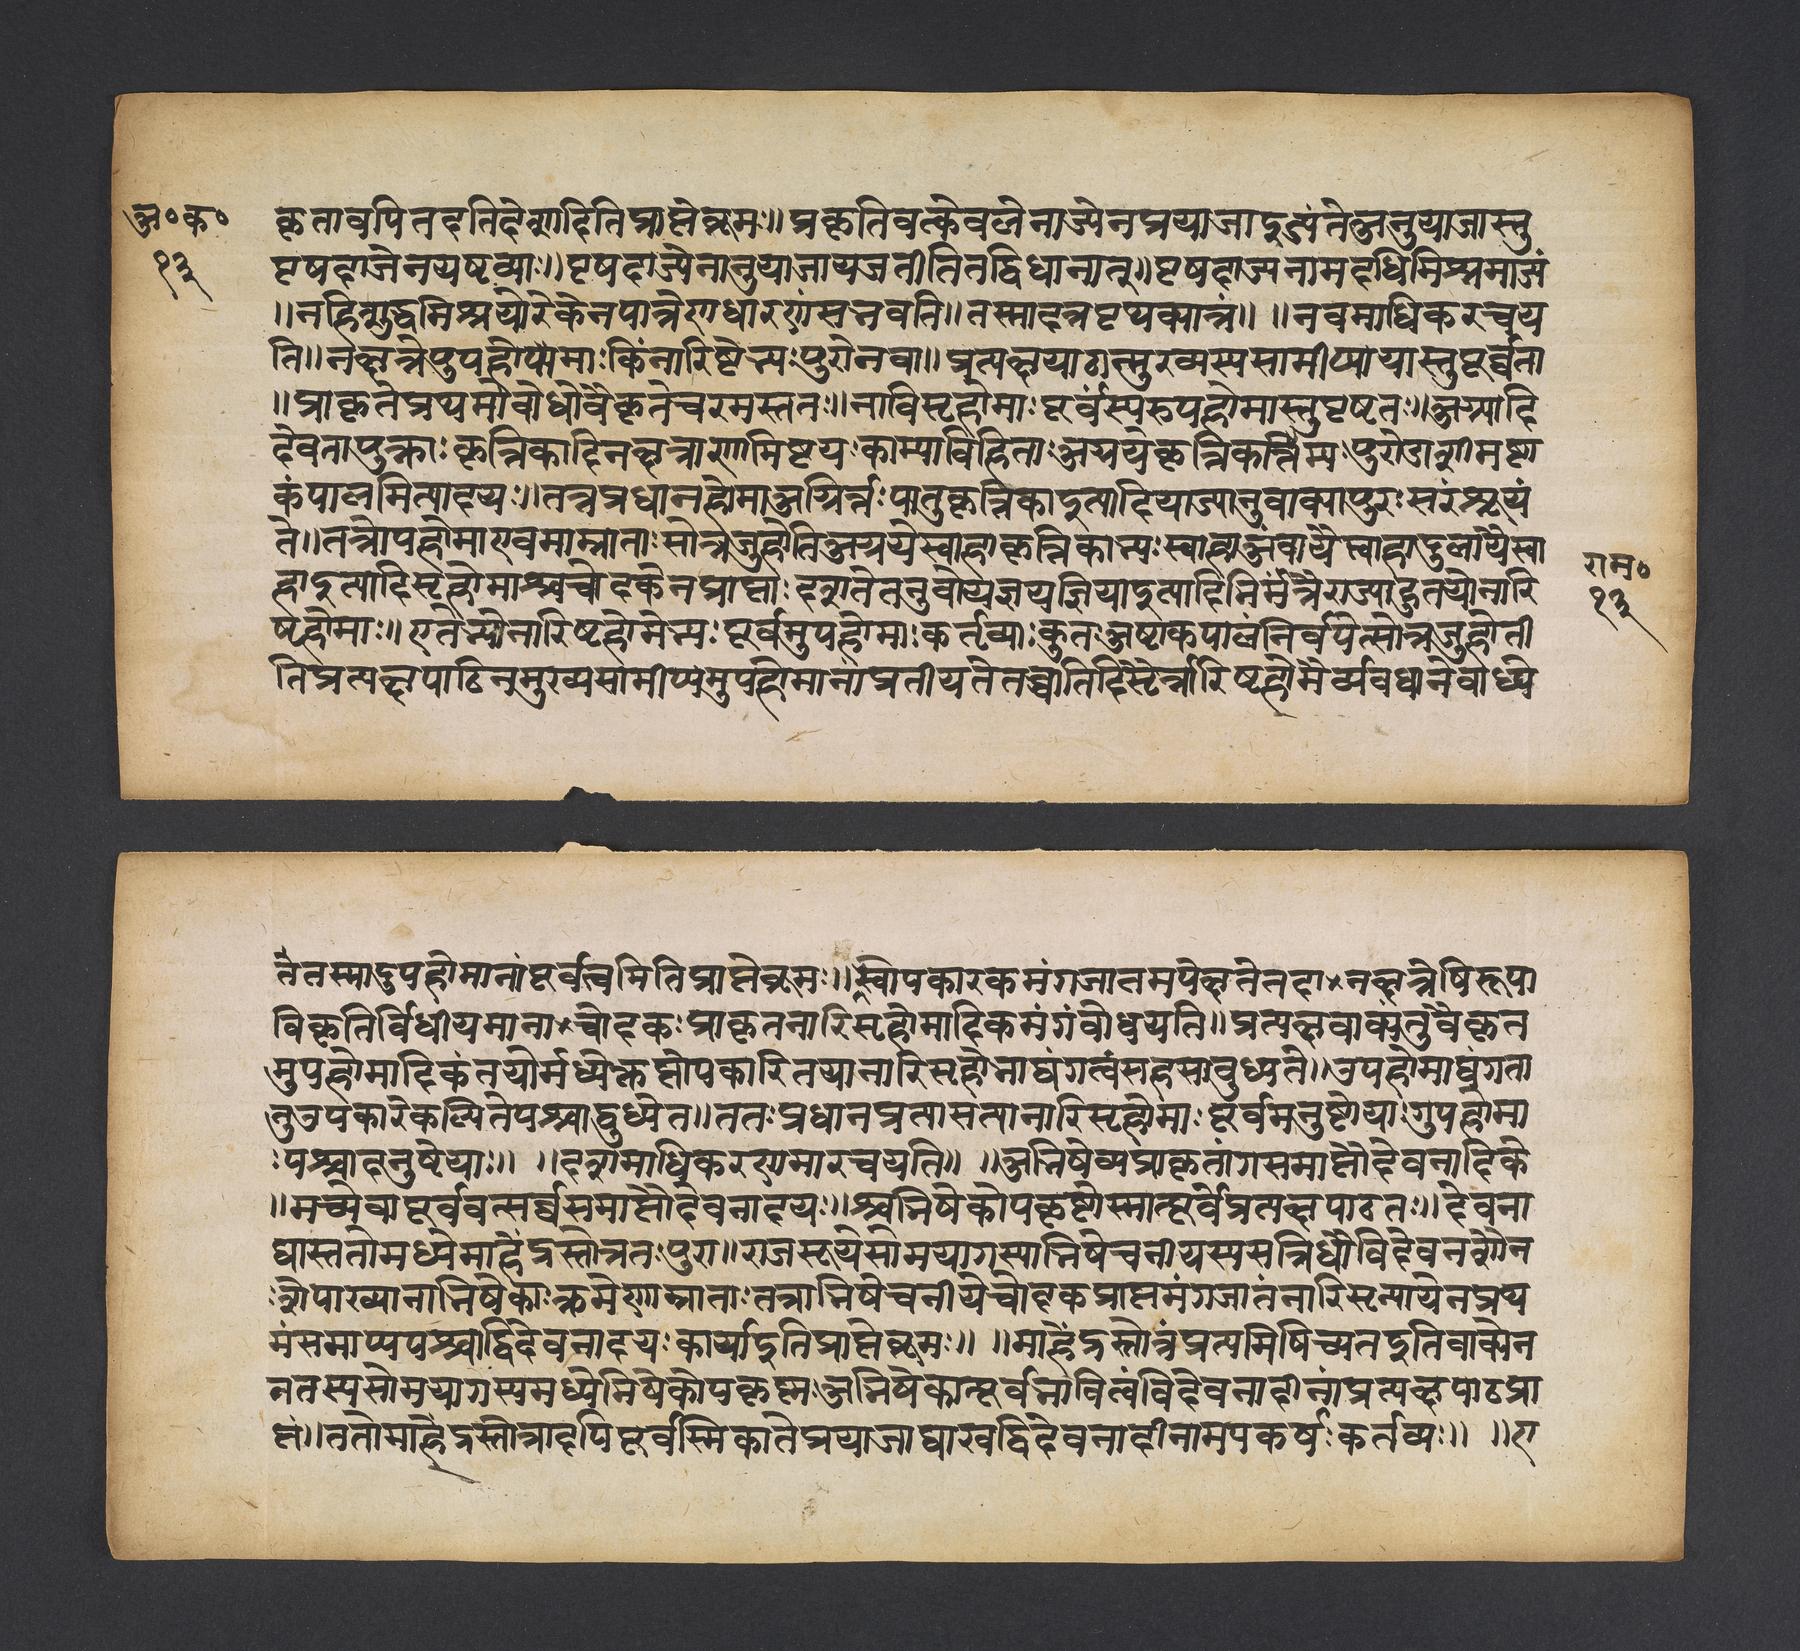 अ॰क॰
१३
कृतावपितदतिदेशादितिप्राप्तेब्रूमः॥प्रकृतिवत्केवलेनाज्येनप्रयाजाइज्यंतेअनुयाजास्तु
पृषदाजेनयष्टव्याः॥पृषदाज्येनानुयाजायजतीतितद्विधानात्॥पृषदाज्यनामदधिमिश्रमाज्यं
॥नहिशुद्धमिश्रयोरेकेनपात्रेणधारणंसंभवति॥तस्मादत्रपृथक्पात्रं॥ ॥नवमाधिकरचय
ति॥नक्षत्रेषुपहोमाःकिंनारिष्टेभ्यःपुरोनवा॥प्रत्यक्षपाठात्मुख्यस्यसामीप्यायास्तुपूर्वता
॥प्राकृतेप्रथमोबोधोवैकृतेचरमस्ततः॥नारिष्टहोमाःपूर्वंस्युरुपहोमास्तुपृष्टतः॥अग्न्यादि
देवतायुक्ताःकृत्तिकादिनक्षत्राणामिष्टयःकाम्याविहिताःअग्नयेकृत्तिकाभ्यःपुरोडाशमष्टा
कंपालमित्यादयः॥तत्रप्रधानहोमाअग्निर्नःपातुकृत्तिकाइत्यादियाज्यानुवाक्यापुरःसरंश्रूयं
ते॥तत्रोपहोमाएवमाम्नाताःसोत्रजुहोतिअग्नयेस्वाहाकृत्तिकाभ्यःस्वाहाअंबायैस्वाहादुलायैस्वा
हाइत्यादिसृहोमाश्चचोदकेनप्राप्ताःदशतेतनुवोयज्ञयज्ञियाइत्यादिभिर्मंत्रैराज्याहुतयोनारि
ष्टहोमाः॥एतेभ्योनारिष्टहोमेभ्यःपूर्वमुपहोमाःकर्तव्याःकुतःअष्टाकपालंनिर्वपेत्सोत्रजुहोती
तिप्रत्यक्षपाठेनमुख्यसामीप्यमुपहोमानांप्रतीयतेतच्चातिदिष्टैर्नारिष्टहोमैर्व्यवधानेबाध्ये
राम॰
१३
तंतस्मादुपहोमानांपूर्वत्वमितिप्राप्तेब्रूमः॥स्वोपकारकमंगजातमपेक्षतेतदा×नक्षत्रेष्टिरूपा
विकृतिर्विधीयमाना×चोदकःप्राकृतनारिसृहोमादिकमंगंबोधयति॥प्रत्यक्षवाक्यंतुवैकृत
मुपहोमादिकंतयोर्मध्येक्लप्तोपकारितयानारिसृहोमाद्यंगत्वंसहसाबुध्यते॥उपहोमाद्यंगता
तुउपकारेकल्पितेपश्चाद्बुध्येत॥ततःप्रधानप्रत्यासत्यानारिसृहोमाःपूर्वमनुष्टेयाःगुपहोमा
ःपश्चादनुष्टेयाः॥ ॥दशमाधिकरणमारचयति॥ ॥अभिषेच्यप्राकृतांगसमाप्तौदेवनादिके
॥मध्येवापूर्ववत्सर्वसमाप्तौदेवनादयः॥श्चभिषेकोपकृष्टोस्मात्पूर्वेप्रत्यक्षपाठतः॥देवना
द्यास्ततोमध्येमाहेंद्रस्तोत्रतःपुरा॥राजसूयेसोमयागस्याभिषेचनीयस्यसन्निधौविदेवनशौन
ःशेपाख्यानाभिषेकाःक्रमेणाम्नाताःतत्राभिषेचनीयेचोदकप्राप्तमंगजातंनारिसृन्यायेनप्रथ
मंसमाप्यपश्चाद्विदेवनादयःकार्याइतिप्राप्तेब्रूमः॥ ॥माहेंद्रस्तोत्रंप्रत्यभिषिच्यतइतिवाक्येन
नतस्यसोमयागस्यमध्येभिषेकोपकृष्टःअभिषेकात्पूर्वभावित्वंविदेवनादीनांप्रत्यक्षपाठप्रा
प्तं॥ततोमाहेंद्रस्तोत्रादपिपूर्वस्मिकातेप्रयाजाद्याखद्विदेवनादीनामपकर्षःकर्तव्यः॥ ॥ए